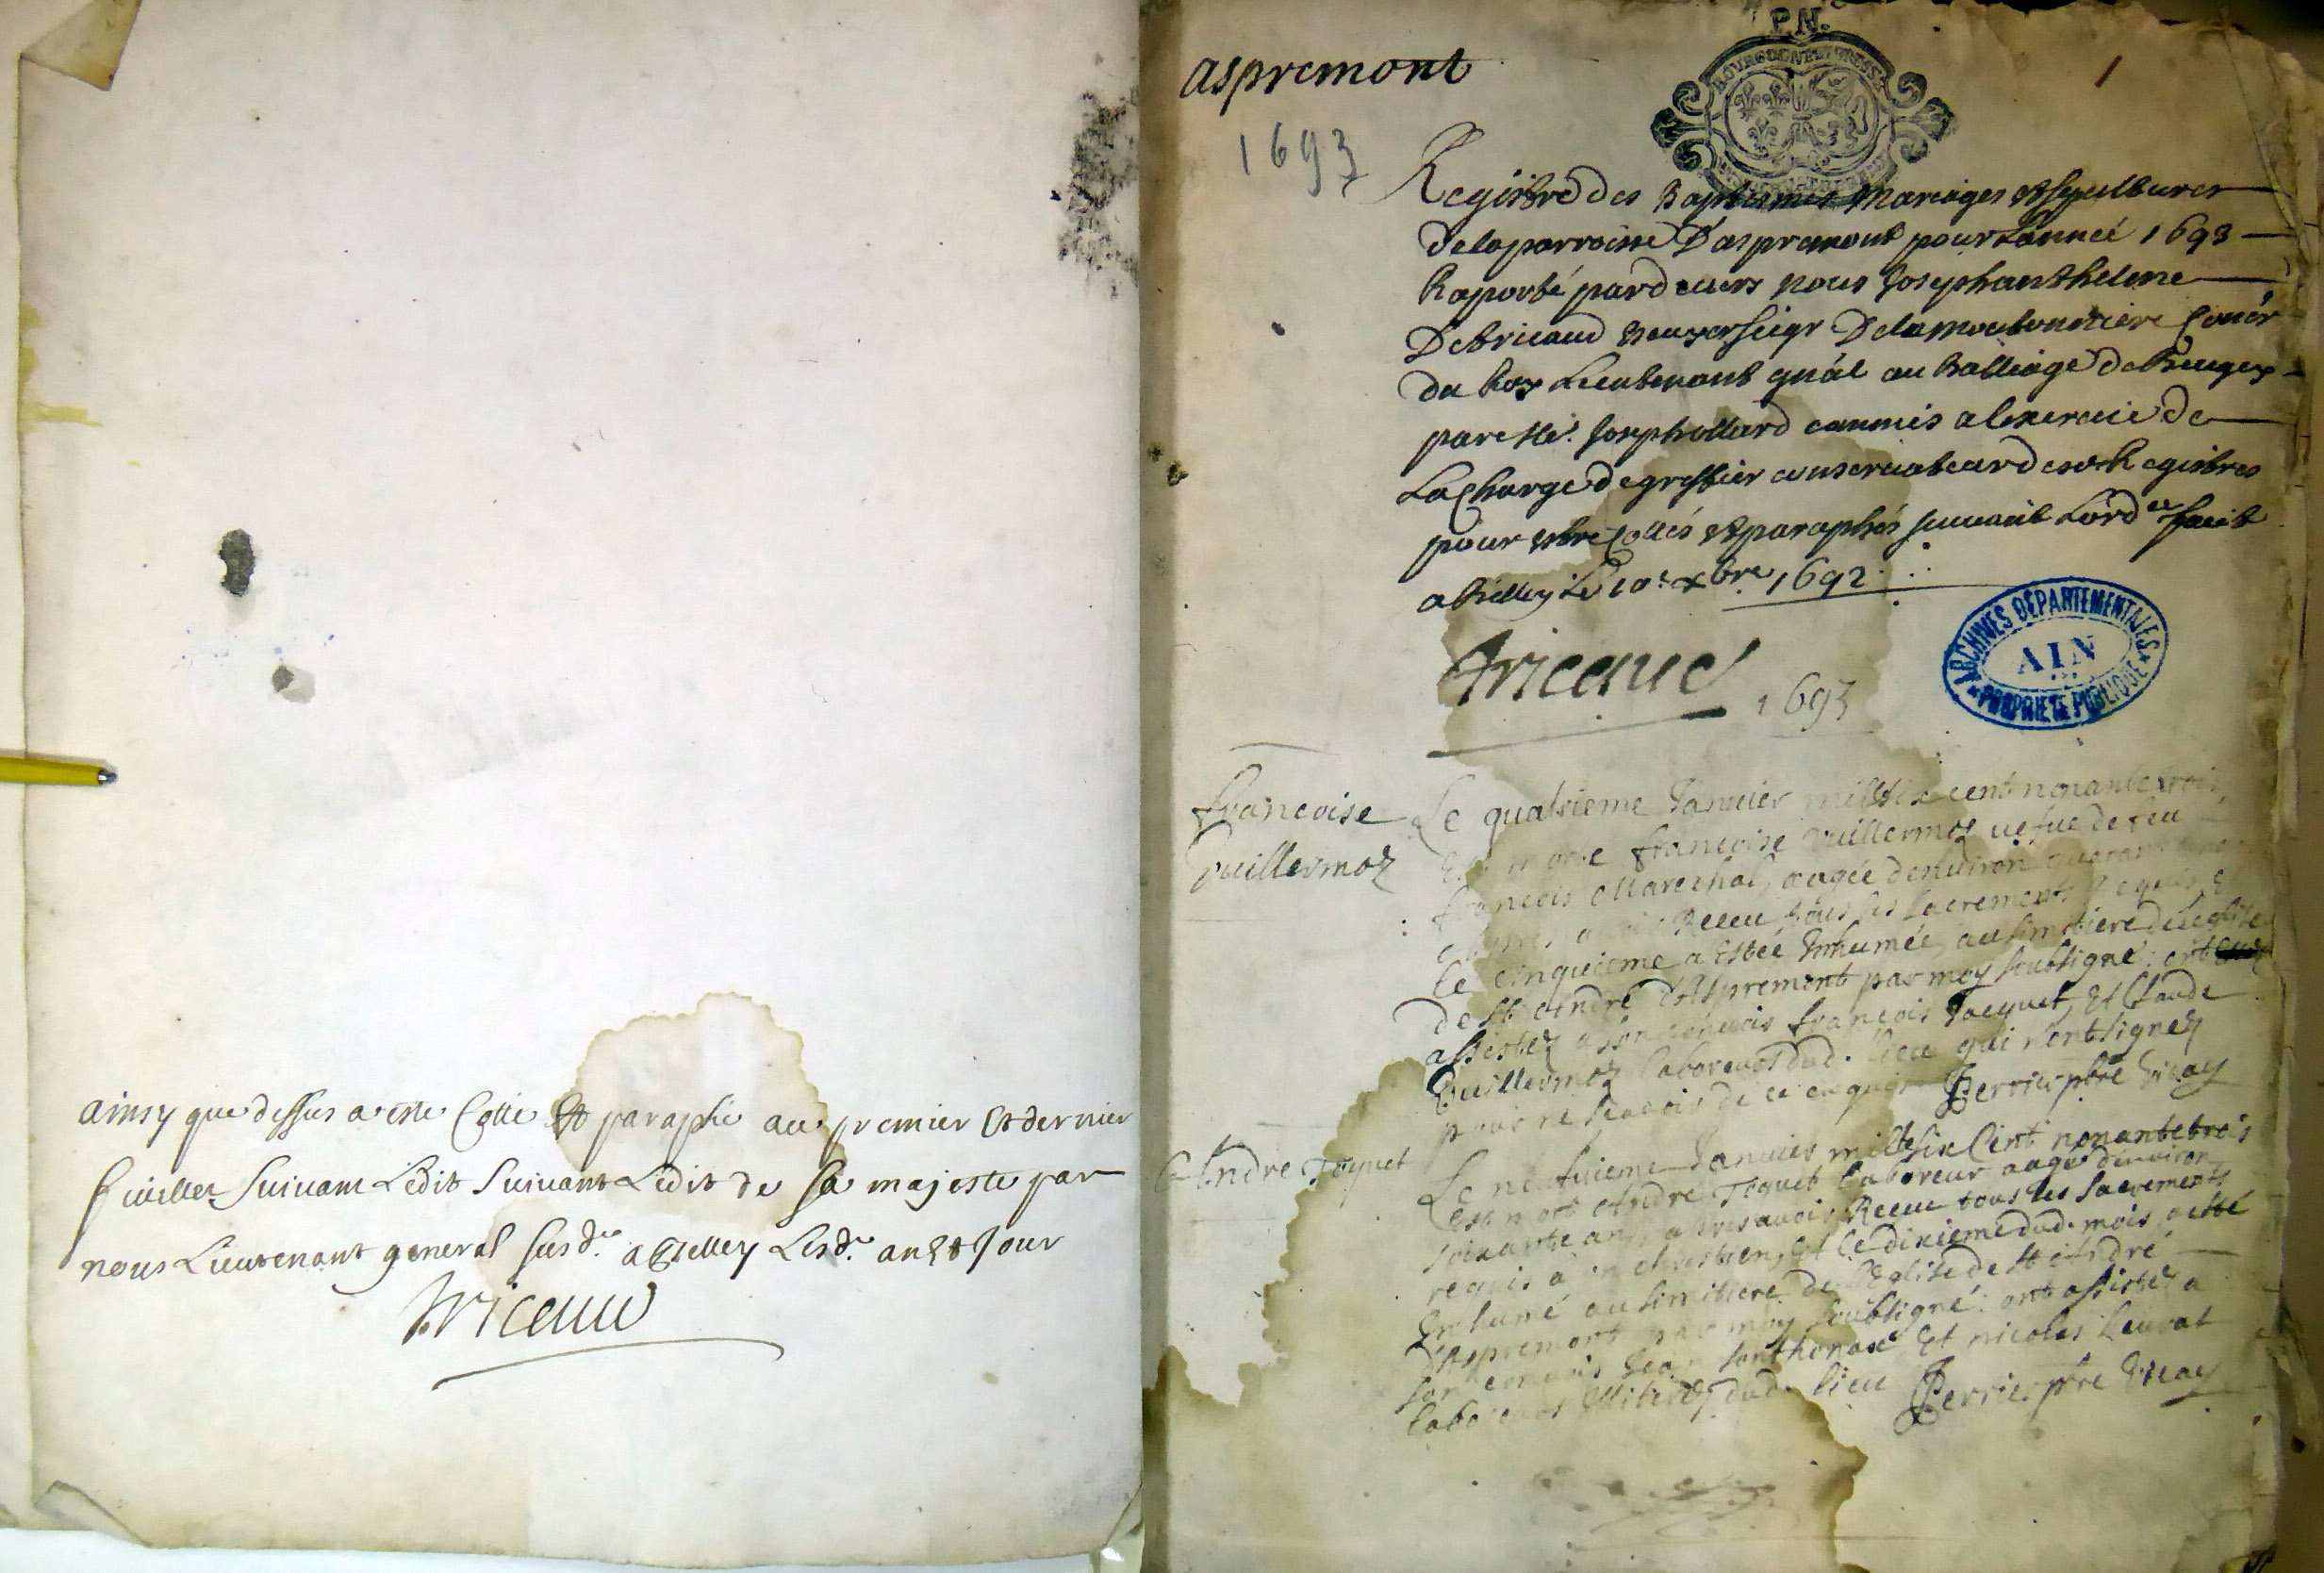 ainsy que dessus a este Cotté Et paraphé au premier Et dernier
fueillet Suivant Ledit Suivant Ledit de sa majesté par
nous Lieutenant general susd. a Belley Lesd. an Et Jour
Tricaud
aspremont
1
1693
P.N.
Registre des Baptesmes Mariages et sepultures
de la parroisse D'aspremont pour L'année 1693
Raporté pardevers nous Joseph anthelme
De tricaud seigr De la Conér
du Roy Lieutenant gnál au Balliage de Beugey
par Me. Joseph commis a lexercice de
La Charge de greffier conservateur des Registres
pour estre Cottés et paraphés suivant L'ord. fait
a Belley Le 10e xbre 1692
ARCHIVES DÉPARTEMENTALES
AIN
PROPRIÉTÉ PUBLIQUE
Tricaud
1693
francoise
Vuillermoz
Le quatrieme Januier mil six cent nonante trois
Est morte francoise Vuillermoz uefue de feu
francois Marechal, aagée denuiron
Receu tous les sacrements
le cinquieme a Estée Enhumée, au simitiere de leglise
de St André d'Aspremont par moy soubsigné: ont
assistez a son conuois francois Jacquet, Et Claude
Vuillermoz laboreurs dud. lieu qui n'ont signez
pour ne scauois de ce enquis Perrier pbre Vicay
Andre Toquet
Le neufuieme Januier mil six Cent nonante trois
est mort André Toquet laboreur aagé denuiron
soixante ans, apres auois Receu tous les sacrements
requis a un chrestien, Et le dixieme dud. mois a esté
Enhumé au simitiere de l'Eglise de St André
d'Aspremont par moy soubsigné: ont assistez a
son conuois Jean Et nicolas
laboreurs dud. lieu Perrier pbre Vicay